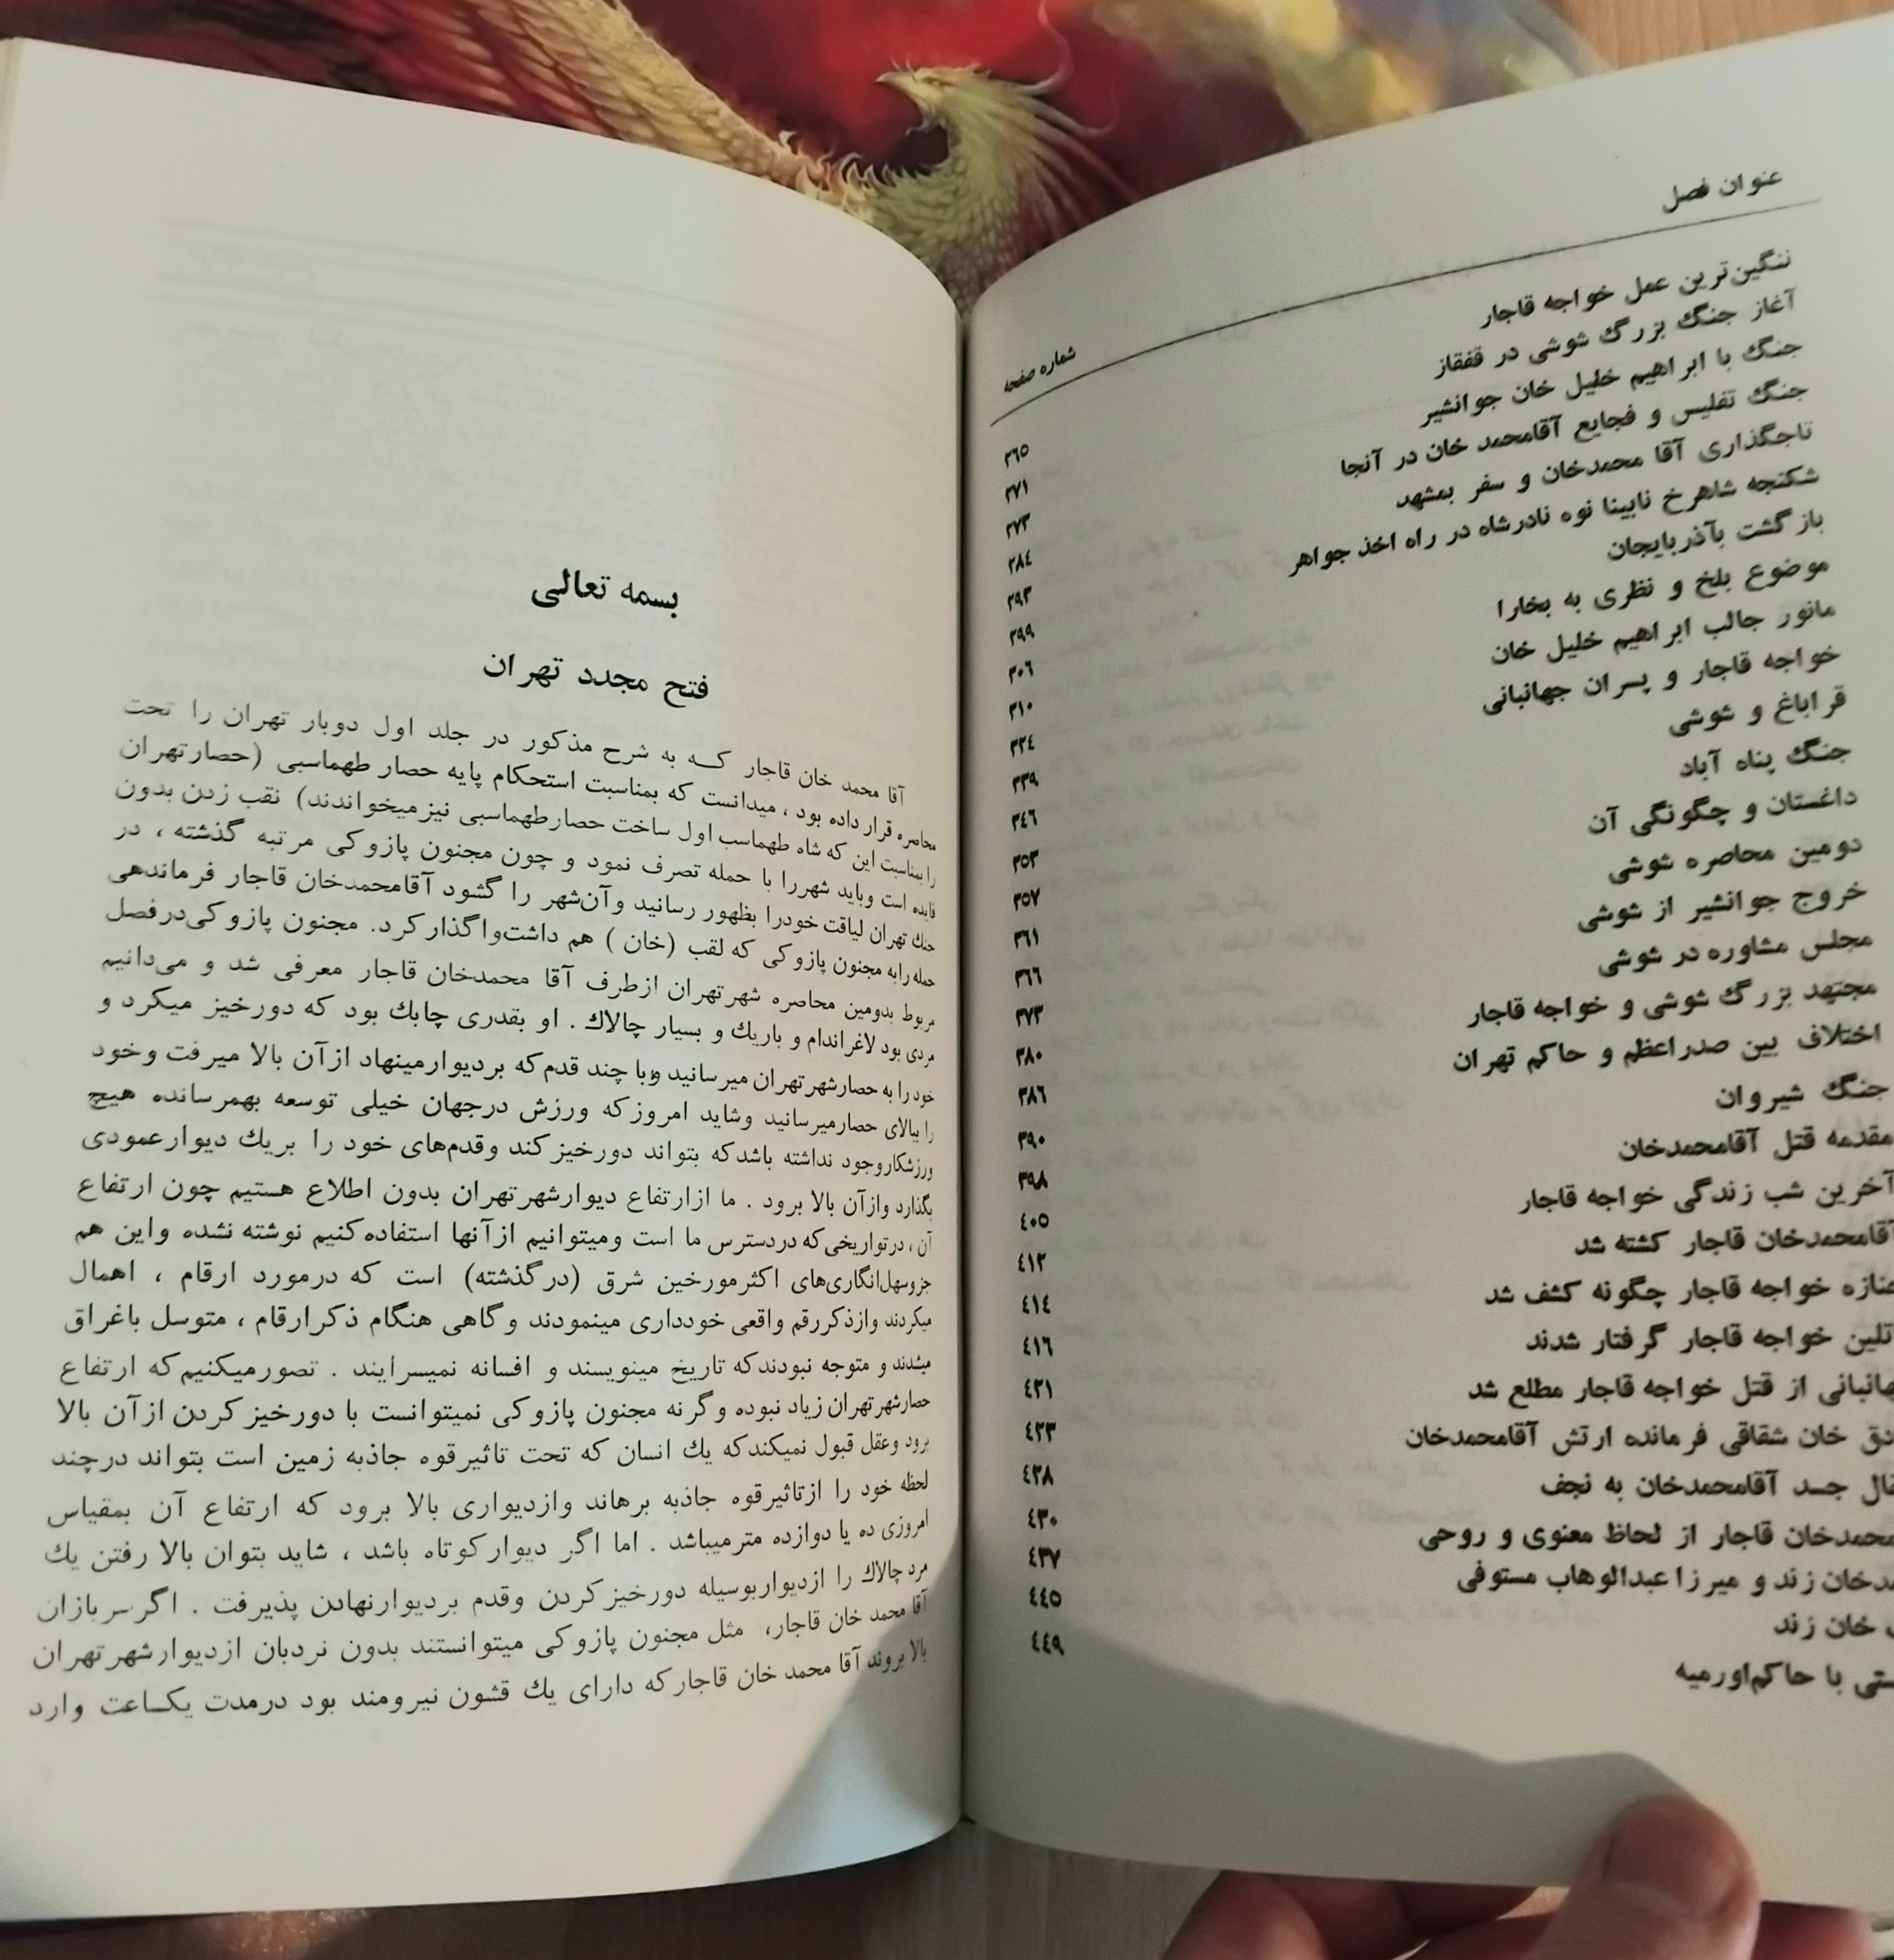 عنوان فصل
شماره صفحه
ننگین‌ترین عمل خواجه قاجار
۲۶۵
آغاز جنگ بزرگ شوشی در قفقاز
۲۷۱
جنگ با ابراهیم خلیل خان جوانشیر
۲۷۳
جنگ تفلیس و فجایع آقامحمد خان در آنجا
۲۸٤
تاجگذاری آقا محمدخان و سفر بمشهد
۲۹۳
شکنجه شاهرخ نابینا نوه نادرشاه در راه اخذ جواهر
۲۹۹
بازگشت بآذربایجان
۳۰٦
موضوع بلخ و نظری به بخارا
۳۱۰
مانور جالب ابراهیم خلیل خان
۳۳٤
خواجه قاجار و پسران جهانبانی
۳۳۹
قراباغ و شوشی
۳٤٦
جنگ پناه آباد
۳۵۳
داغستان و چگونگی آن
۳۵۷
دومین محاصره شوشی
۳٦۱
خروج جوانشیر از شوشی
۳٦٦
مجلس مشاوره در شوشی
۳۷۳
مجتهد بزرگ شوشی و خواجه قاجار
۳۸۰
اختلاف بین صدراعظم و حاکم تهران
۳۸٦
جنگ شیروان
۳۹۰
مقدمه قتل آقامحمدخان
۳۹۸
آخرین شب زندگی خواجه قاجار
٤۰۵
آقامحمدخان قاجار کشته شد
٤۱۲
جنازه خواجه قاجار چگونه کشف شد
٤۱٤
تلین خواجه قاجار گرفتار شدند
٤۱٦
هانبانی از قتل خواجه قاجار مطلع شد
٤۲۱
دق خان شقاقی فرمانده ارتش آقامحمدخان
٤۲۳
قال جسد آقامحمدخان به نجف
٤۲۸
محمدخان قاجار از لحاظ معنوی و روحی
٤۳۰
دخان زند و میرزا عبدالوهاب مستوفی
٤۳۷
خان زند
٤٤۵
ستی با حاکم‌اورمیه
٤٤۹
بسمه تعالی
فتح مجدد تهران
آقا محمد خان قاجار که به شرح مذکور در جلد اول دوبار تهران را تحت
محاصره قرار داده بود ، میدانست که بمناسبت استحکام پایه حصار طهماسبی (حصارتهران
را بمناسبت این که شاه طهماسب اول ساخت حصارطهماسبی نیزمیخواندند) نقب زدن بدون
فایده است وباید شهررا با حمله تصرف نمود و چون مجنون پازوکی مرتبه گذشته ، در
جنك تهران لیاقت خودرا بظهور رسانید وآن‌شهر را گشود آقامحمدخان قاجار فرماندهی
حمله رابه مجنون پازوکی که لقب (خان ) هم داشت‌واگذارکرد. مجنون پازوکی‌درفصل
مربوط بدومین محاصره شهرتهران ازطرف آقا محمدخان قاجار معرفی شد و می‌دانیم
مردی بود لاغراندام و باریك و بسیار چالاك . او بقدری چابك بود که دورخیز میکرد و
خود را به حصارشهرتهران میرسانید وبا چند قدم‌که بردیوارمینهاد ازآن بالا میرفت وخود
را ببالای حصارمیرسانید وشاید امروزکه ورزش درجهان خیلی توسعه بهمرسانده هیچ
ورزشکاروجود نداشته باشدکه بتواند دورخیزکند وقدم‌های خود را بریك دیوارعمودی
بگذارد وازآن بالا برود . ما ازارتفاع دیوارشهرتهران بدون اطلاع هستیم چون ارتفاع
آن ، درتواریخی‌که دردسترس ما است ومیتوانیم ازآنها استفاده‌کنیم نوشته نشده واین هم
جزوسهل‌انگاری‌های اکثرمورخین شرق (درگذشته) است که درمورد ارقام ، اهمال
میکردند وازذکررقم واقعی خودداری مینمودند وگاهی هنگام ذکرارقام ، متوسل باغراق
میشدند و متوجه نبودندکه تاریخ مینویسند و افسانه نمیسرایند . تصورمیکنیم‌که ارتفاع
حصارشهرتهران زیاد نبوده وگرنه مجنون پازوکی نمیتوانست با دورخیزکردن ازآن بالا
برود وعقل قبول نمیکندکه یك انسان که تحت تاثیرقوه جاذبه زمین است بتواند درچند
لحظه خود را ازتاثیرقوه جاذبه برهاند وازدیواری بالا برود که ارتفاع آن بمقیاس
امروزی ده یا دوازده مترمیباشد . اما اگر دیوارکوتاه باشد ، شاید بتوان بالا رفتن یك
مرد چالاك را ازدیواربوسیله دورخیزکردن وقدم بردیوارنهادن پذیرفت . اگرسربازان
آقا محمد خان قاجار، مثل مجنون پازوکی میتوانستند بدون نردبان ازدیوارشهرتهران
بالا بروند آقا محمد خان قاجارکه دارای یك قشون نیرومند بود درمدت یکساعت وارد